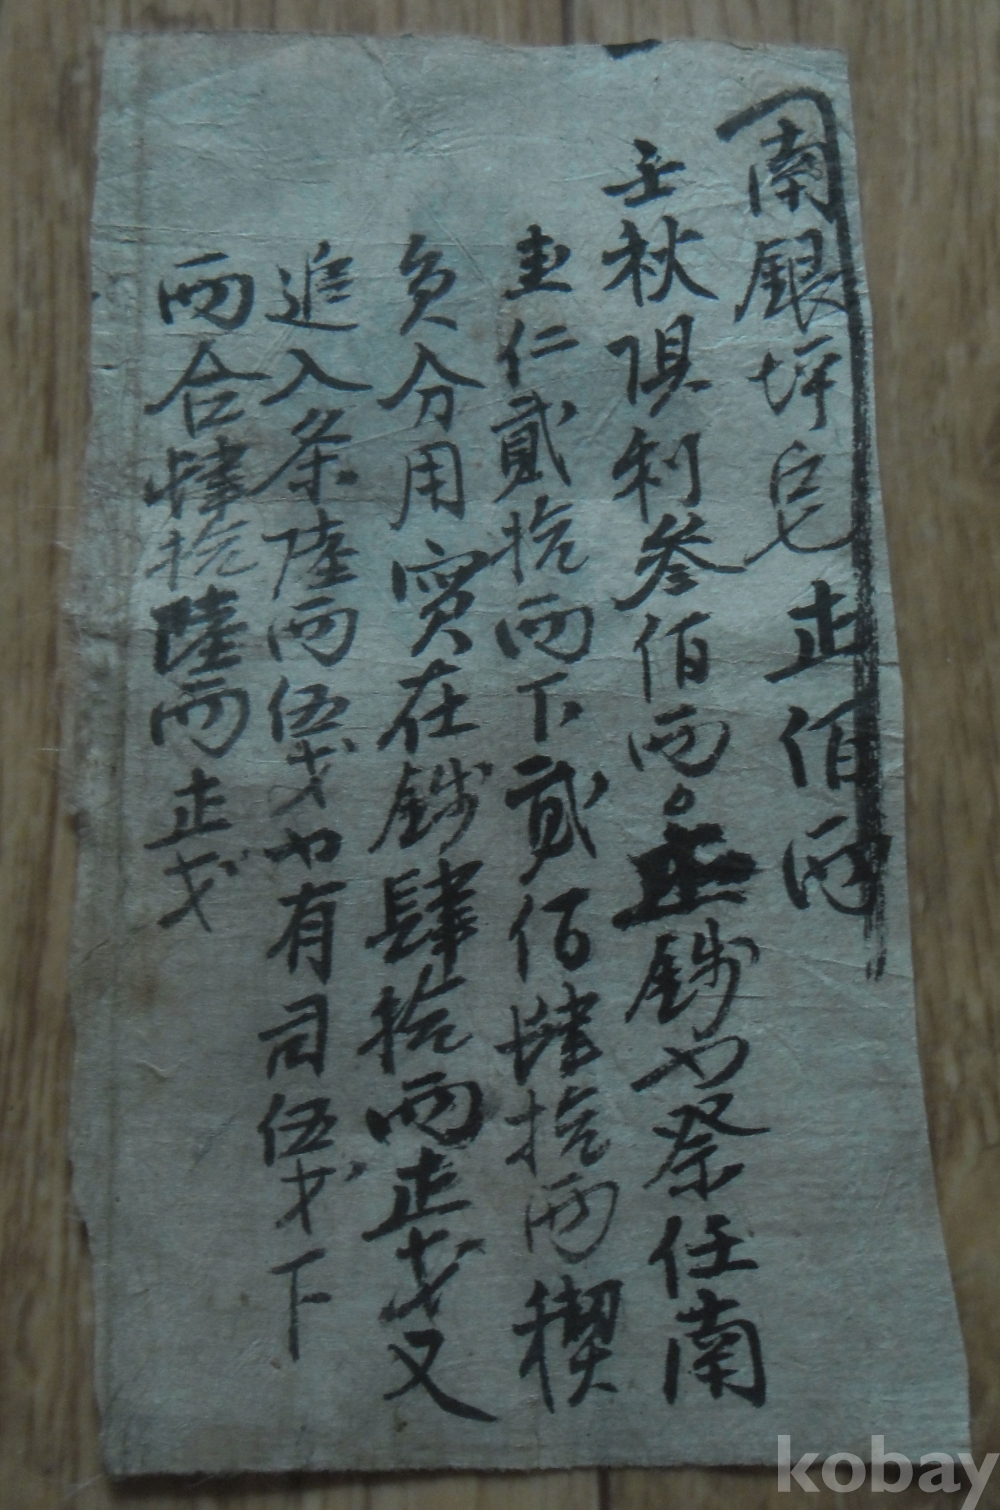 南銀坪宅 正佰両
壬秋俱利叄佰両 錢也祭任南
圭仁貳拾両下貳佰肆拾両稧
負分用實在錢肆拾両正戈又
追入条陸両伍戈也有司伍戈下
両合肆拾陸両正戈
kobay